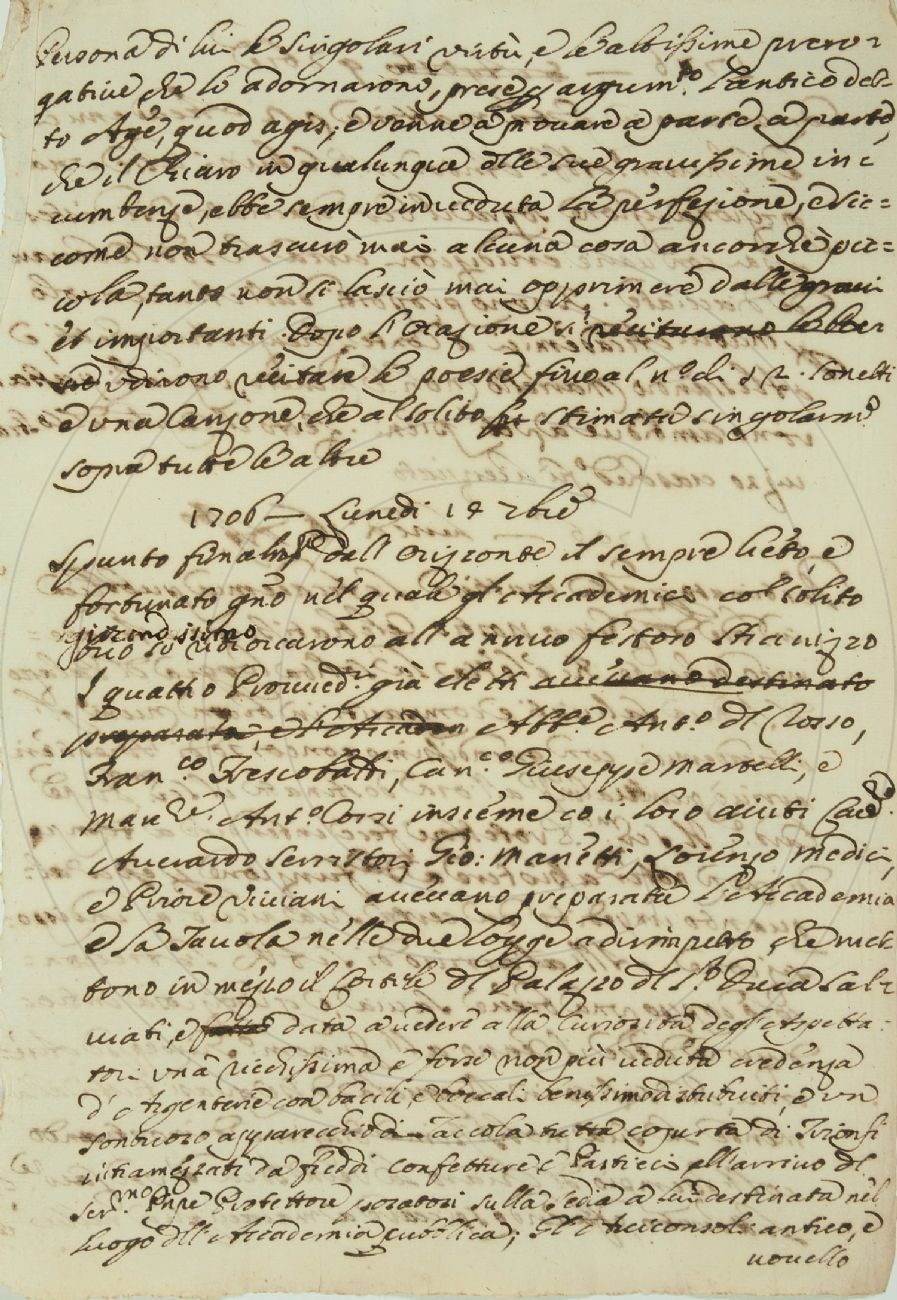 Persona di lui le singolari virtù, e le altissime prero-
gative che lo adornarono, prese p argum.to l'antico det-
to Age, quod agis, e venne a provare a parte, a parte,
che il Chiaro in qualunque delle sue gravissime in-
cumbenze, ebbe sempre in veduta la perfezione, e sic-
come non trascurò mai alcuna cosa ancorchè pic-
cola, tanto non si lasciò mai opprimere dalle gravi
et importanti Dopo l'Orazione si recitarono
udirono recitare le poesie fino al n.o di 12. Sonetti
e una Canzone, che al solito stimata singolarm.e
sopra tutte le altre
1706 — Lunedì 7bre
Spuntò finalm.e dall'Orizonte il sempre lieto, e
fortunato gno nel quale gl'Accademici col solito
giocondissimo
all'annuo festoso Stravizzo
I quattro Provved.ri già eletti avevano destinato
preparata, e l'Accadem Abb.e Ant.o del Rosso,
Fran.co Frescobaldi, Can.co Giuseppe Martelli, e
March.e Ant.o Corsi insieme co i loro aiuti Cav.
Averardo Serristori, Gio: Manetti, Lorenzo Medici,
e Priore Viviani avevano preparata l'Accademia
e la Tavola nelle due logge a dirimpetto, che met-
tono in mezzo il Cortile del Palazzo del S.r Duca Sal-
viati, e data a vedere alla Curiosità degl'Aspetta-
tori una ricchissima e forse non più veduta credenza
d'Argenterie con bacili, e boccali benissimo distribuiti, e un
sontuoso apparecchio di Taccola tutta coperta di Trionfi
intramezzati da freddi confetture e Pasticci all'arrivo del
Ser.mo Pñpe Protettore sulla Sedia a lui destinata nel
luogo dell'Accademia pubblica; gl'Arciconsoli antico, e
novello